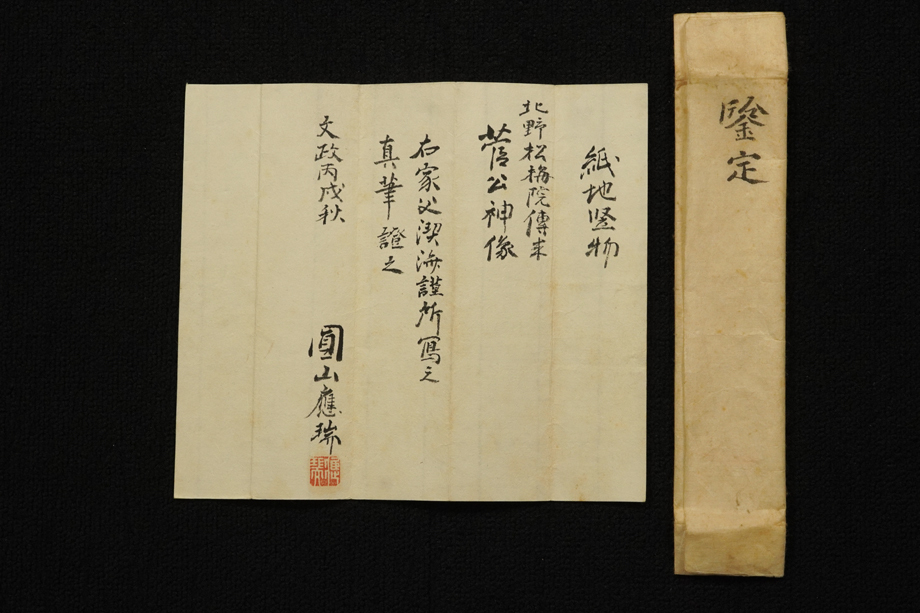 鑒定
紙地竪物
北野松梅院傳来
菅公神像
右家父海謹所寫之
真筆證之
文政丙戌秋
圓山應瑞